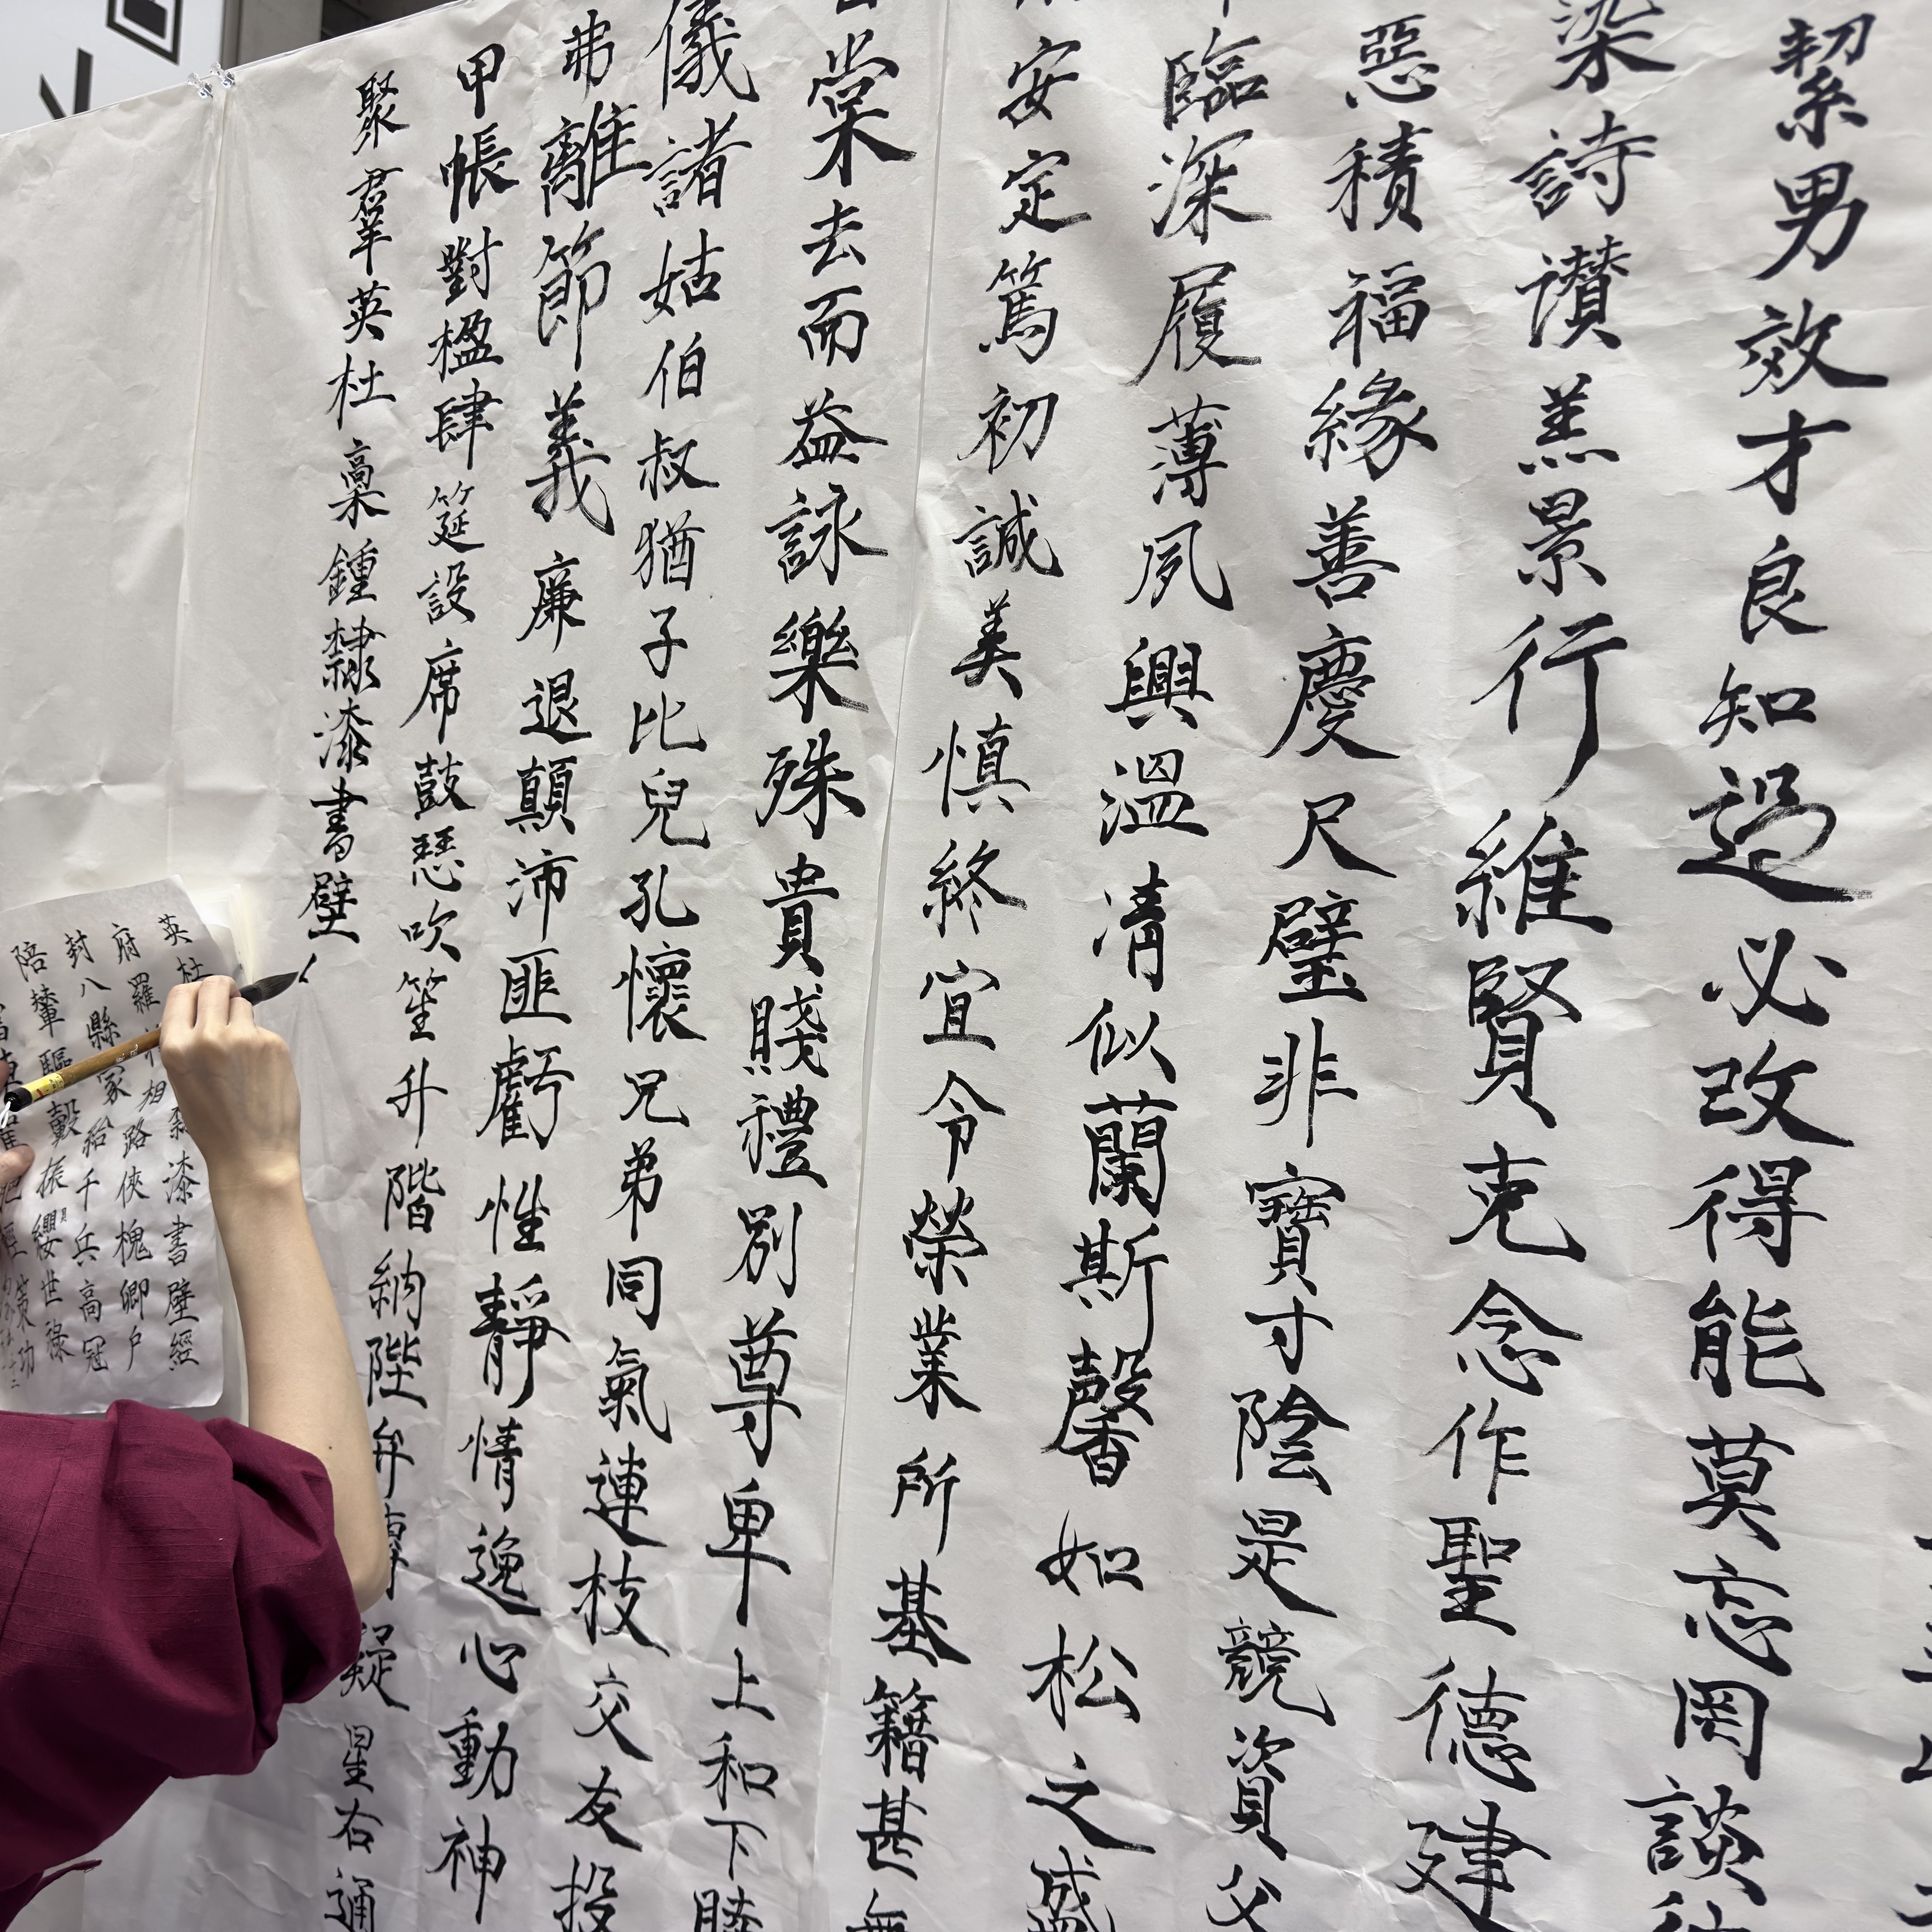 絜男效才良知過必改得能莫忘罔談彼
染詩讚羔景行維賢克念作聖德建
惡積福緣善慶尺璧非寶寸陰是競資父
臨深履薄夙興溫凊似蘭斯馨如松之盛
安定篤初誠美慎終宜令榮業所基籍甚無
棠去而益詠樂殊貴賤禮別尊卑上和下睦
儀諸姑伯叔猶子比兒孔懷兄弟同氣連枝交友投
弗離節義廉退顛沛匪虧性靜情逸心動神
甲帳對楹肆筵設席鼓瑟吹笙升階納陛弁轉疑星右通
聚羣英杜稾鍾隸漆書壁
英杜隸漆書壁經
府羅將相路俠槐卿戶
封八縣家給千兵高冠
陪輦驅轂振纓世祿
策功